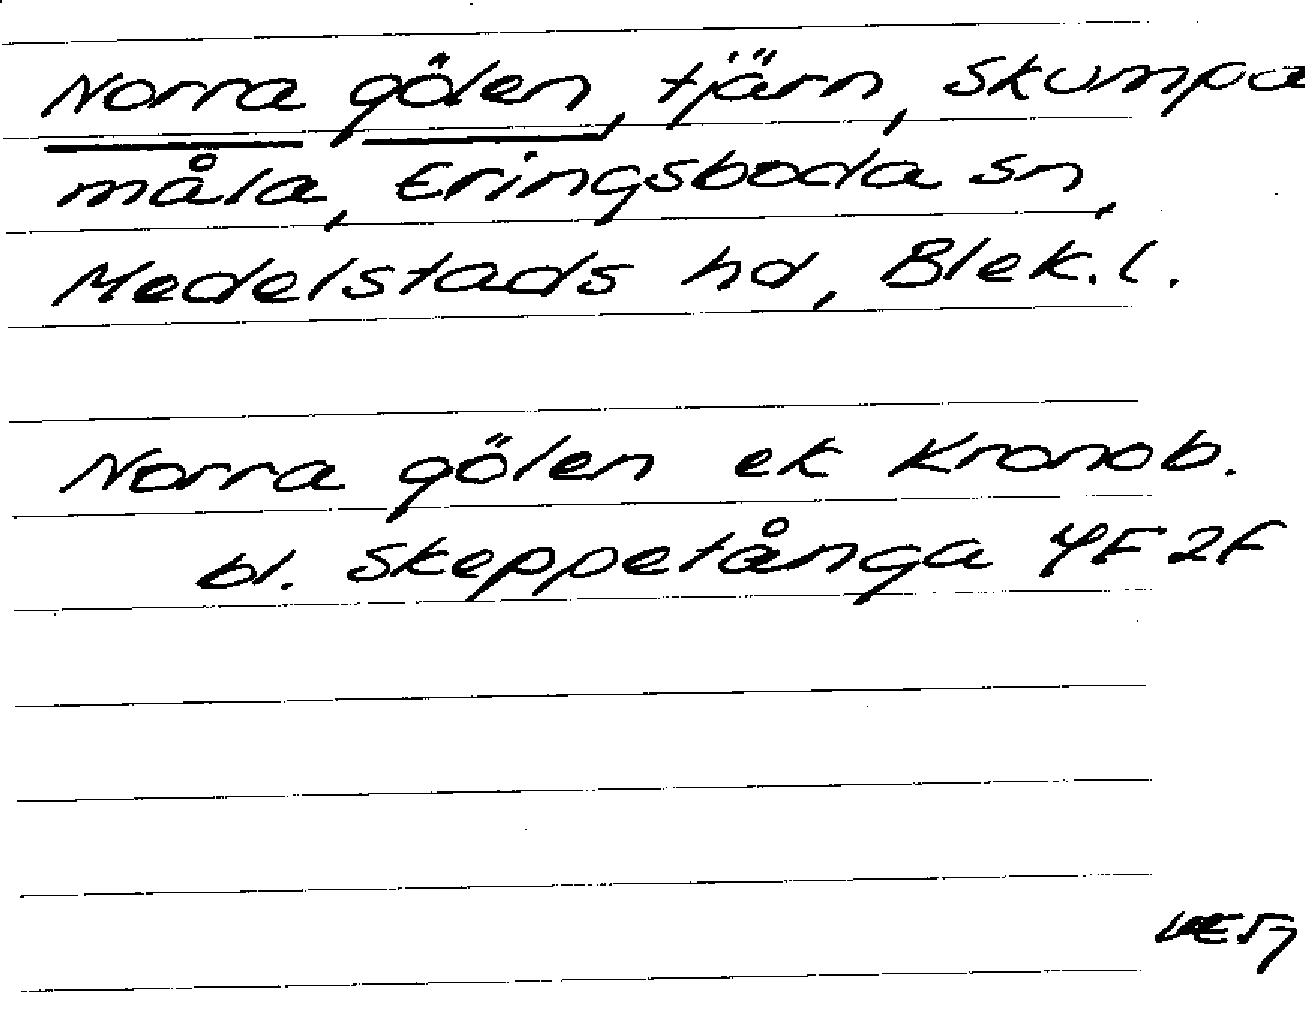 Norra gölen, tjärn, Skumpa
måla, Eringsboda sn,
Medelstads hd, Blek. l.
Norra gölen ek Kronob.
bl. Skeppetånga 4F 2f